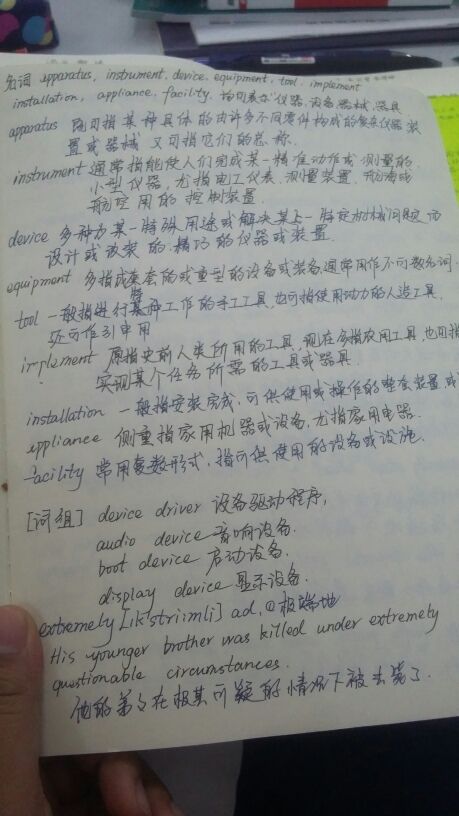 名词 apparatus, instrument, device, equipment, tool, implement
installation, appliance, facility, 均可表示"仪器,设备,器械,器具
apparatus 既可指某种具体的由许多不同零件构成的复杂仪器装
置或器械 又可指它们的总称.
instrument 通常指能使人们完成某一精准动作或测量的
小型仪器,尤指电工仪表.测量装置.航海或
航空用的控制装置.
device 多种为某一特殊用途或解决某一特定机械问题而
设计或改装的精巧的仪器或装置.
equipment 多指成套的或重型的设备或装备,通常用作不可数名词.
tool 一般指进行某种工作的手工工具,也可指使用动力的人造工具.
还可作引申用
implement 原指史前人类所用的工具.现在多指农用工具,也可指
实现某个任务所需的工具或器具.
installation 一般指安装完成,可供使用或操作的整套装置,或
appliance 侧重指家用机器或设备,尤指家用电器.
facility 常用复数形式,指可供使用的设备或设施.
[词组] device driver 设备驱动程序,
audio device 音响设备.
boot device 启动设备.
display device 显示设备.
extremely [ik'stri:mli] ad. ① 极端地
His younger brother was killed under extremely
questionable circumstances.
他的弟弟在极其可疑的情况下被杀害了.